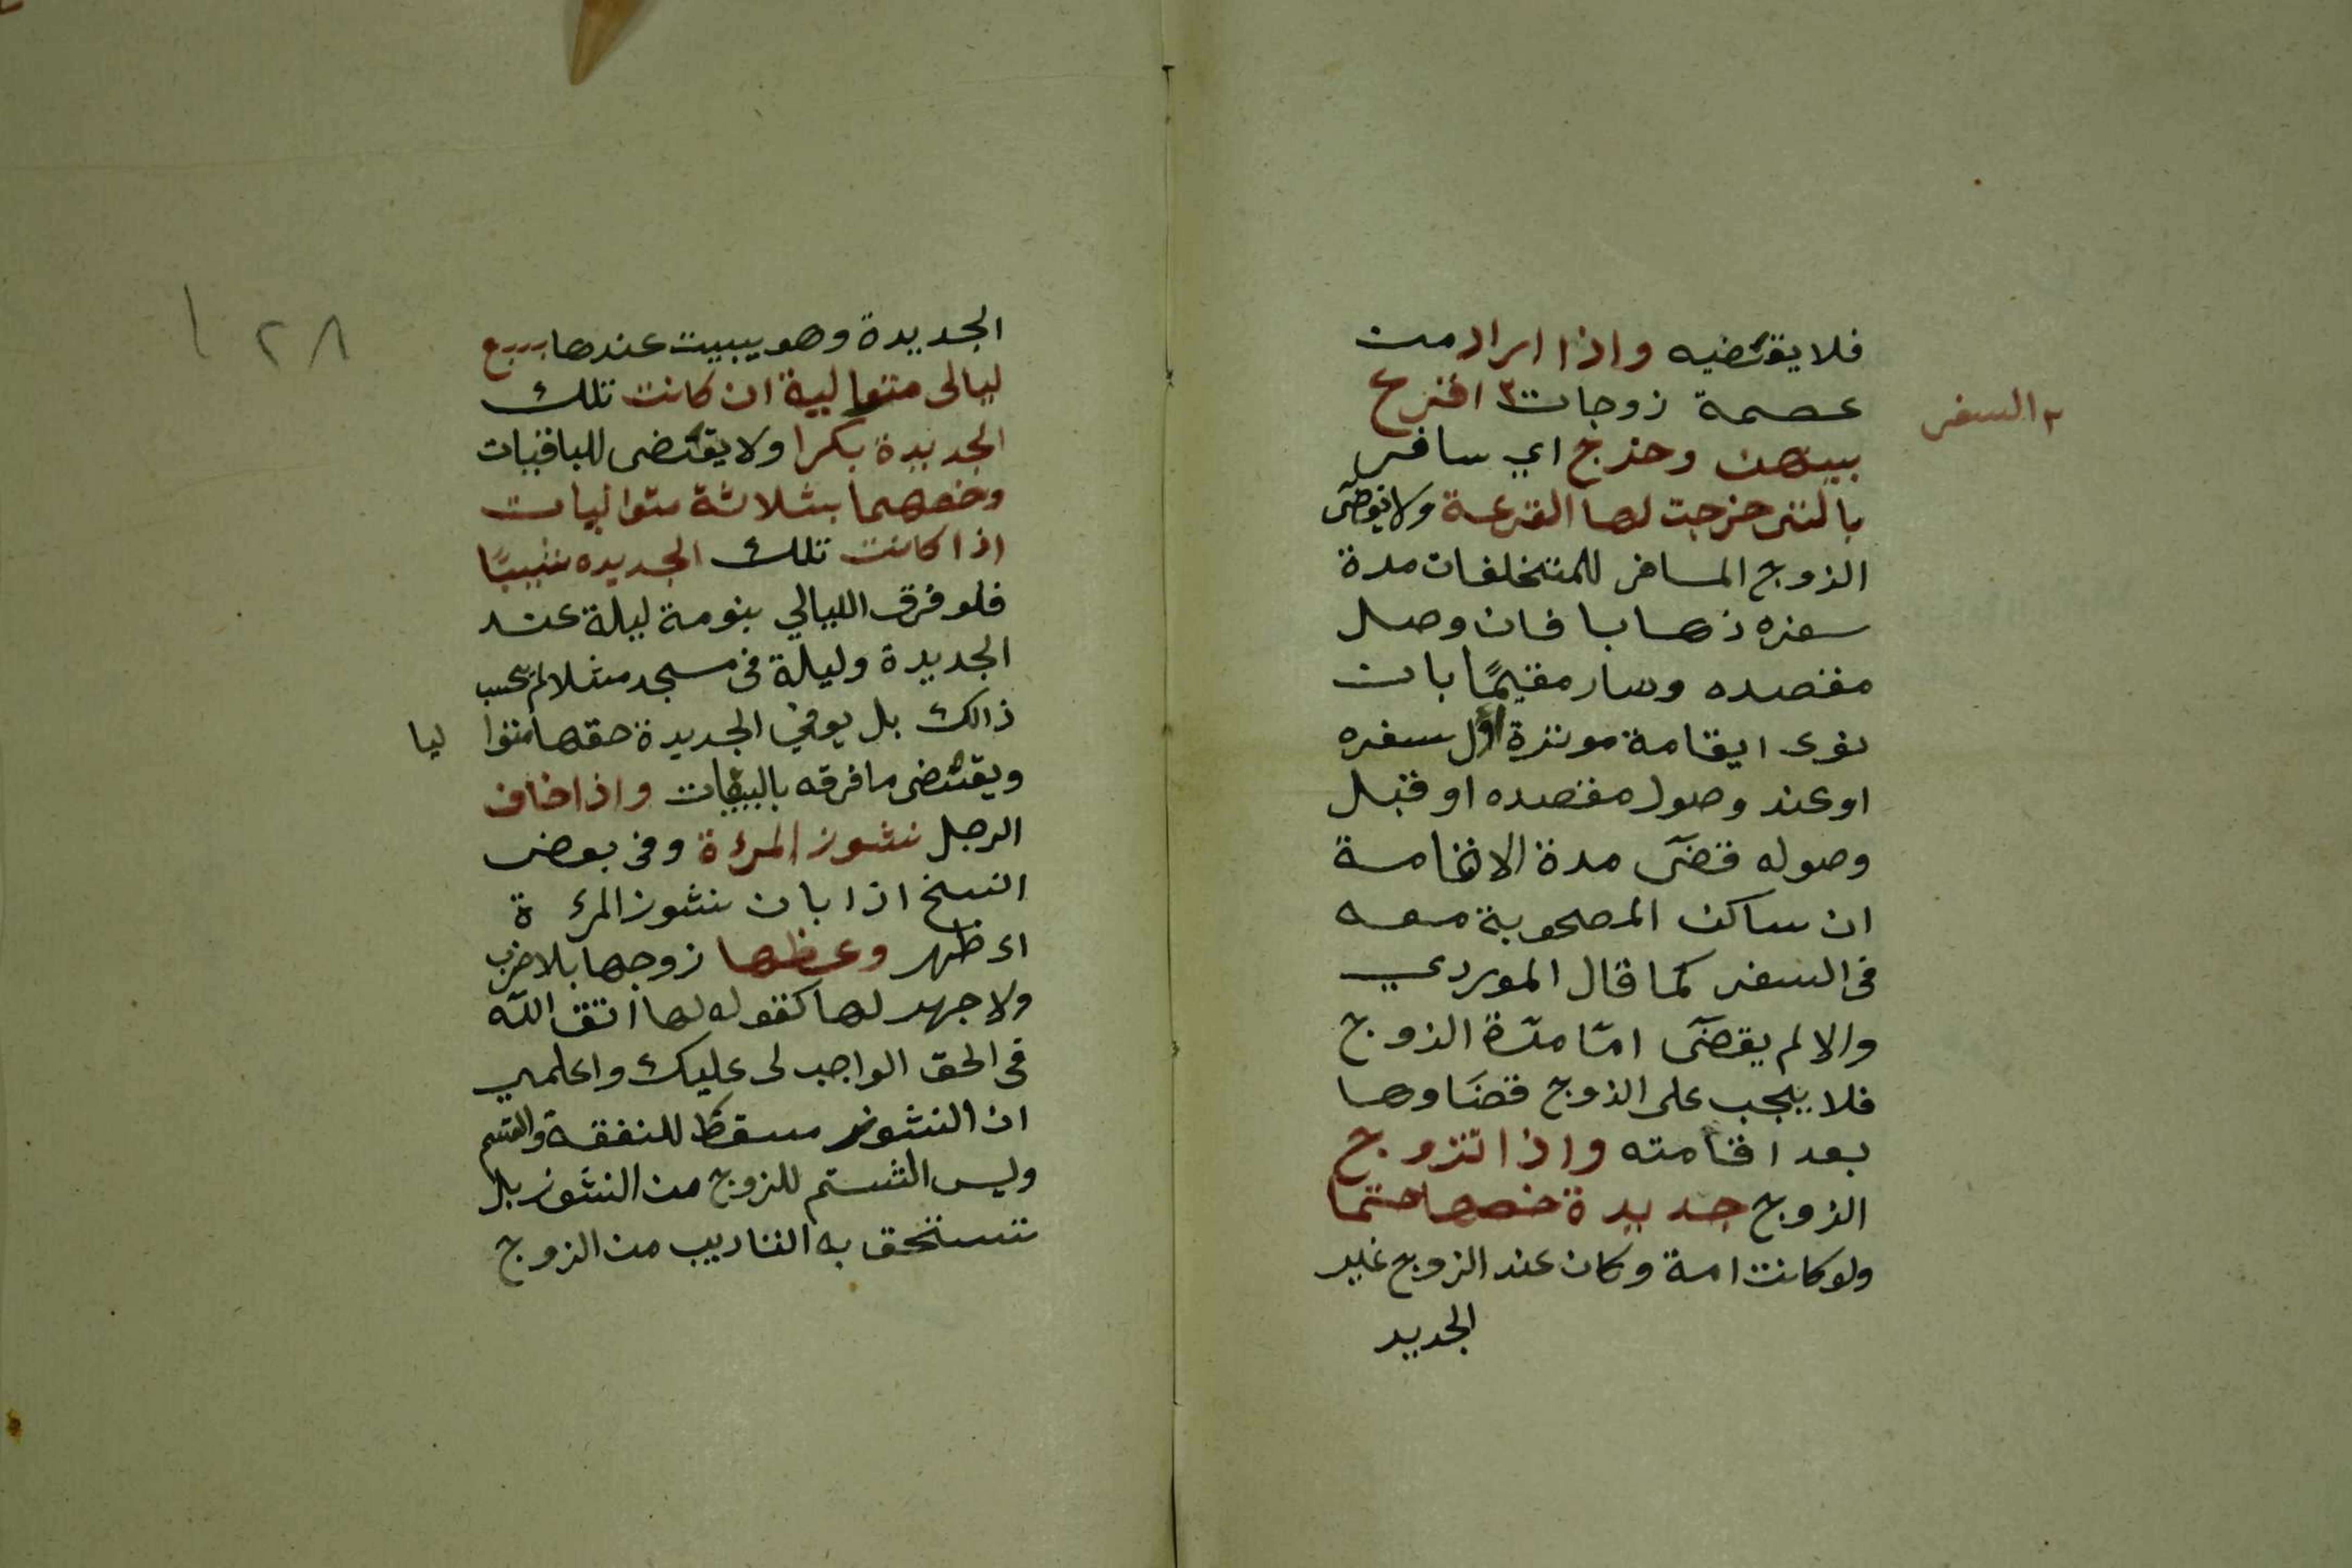 فلا يقتضيه واذا اراد من
عصمة زوجات ٣ اقترع
٣ السفر
بينهن وخرج اي سافر
بالتى خرجت لها القرعة ولا يقضى
الزوج المسافر للمتخلفات مدة
سفره ذهابا فان وصل
مقصده وسار مقيمًا بان
نوى ايقامة موثرة اوّل سفره
او عند وصول مقصده او قبل
وصوله قضى مدة الاقامة
ان ساكن المصحوبة معه
فى السفر كما قال الموردي
والا لم يقضى امّا مدّة الزوج
فلا يجب على الزوج قضاوها
بعد اقامته واذا تزوج
الزوج جديدة خصها حتما
ولو كانت امة وكان عند الزوج غير
الجديد
١٢٨
الجديدة وهو يبيت عندها بسبع
ليالى متوالية ان كانت تلك
الجديدة بكرا ولا يقتضى للباقيات
وخصهما بثلاثة متواليات
اذا كانت تلك الجديده ثيبًا
فلو فرق الليالي بنومة ليلة عند
الجديدة وليلة فى مسجد مثلا لم يحسب
ذالك بل يوفي الجديدة حقها متوا ليا
ويقتضى ما فرقه بالبيقات واذا خاف
الرجل نشوز المرءة وفى بعض
النسخ اذا بان نشوز المرءة
اى ظهر وعظها زوجها بلا ضرب
ولا جهر لها كقوله لها اتق الله
فى الحق الواجب لى عليك واعلمي
ان النشوز مسقط للنفقة والقسم
وليس الشتم للزوج من النشوز بل
تستحق به التاديب من الزوج